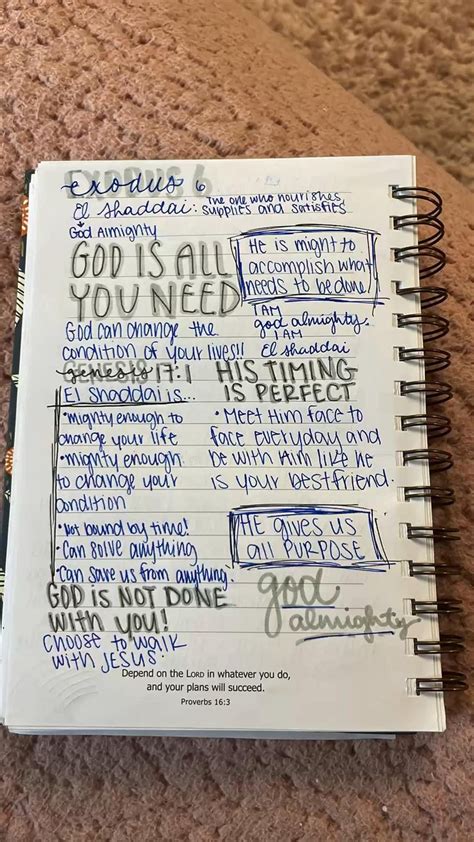 EXODUS 6
exodus 6
El Shaddai: The one who nourishes
supplies and satisfies
God Almighty
GOD IS ALL
YOU NEED
He is might to
accomplish what
needs to be done
I AM
god almighty.
I AM
El Shaddai
God can change the
condition of your lives!!
Genesis 17:1
HIS TIMING
IS PERFECT
El Shaddai is...
• mighty enough to
change your life
• mighty enough
to change your
condition
• Not bound by time!
• Can solve anything
• Can save us from anything
• Meet Him face to
face everyday and
be with Him like he
is your bestfriend.
HE gives us
all PURPOSE
GOD IS NOT DONE
WITH YOU!
god
almighty
Choose to walk
with JESUS
Depend on the LORD in whatever you do,
and your plans will succeed.
Proverbs 16:3